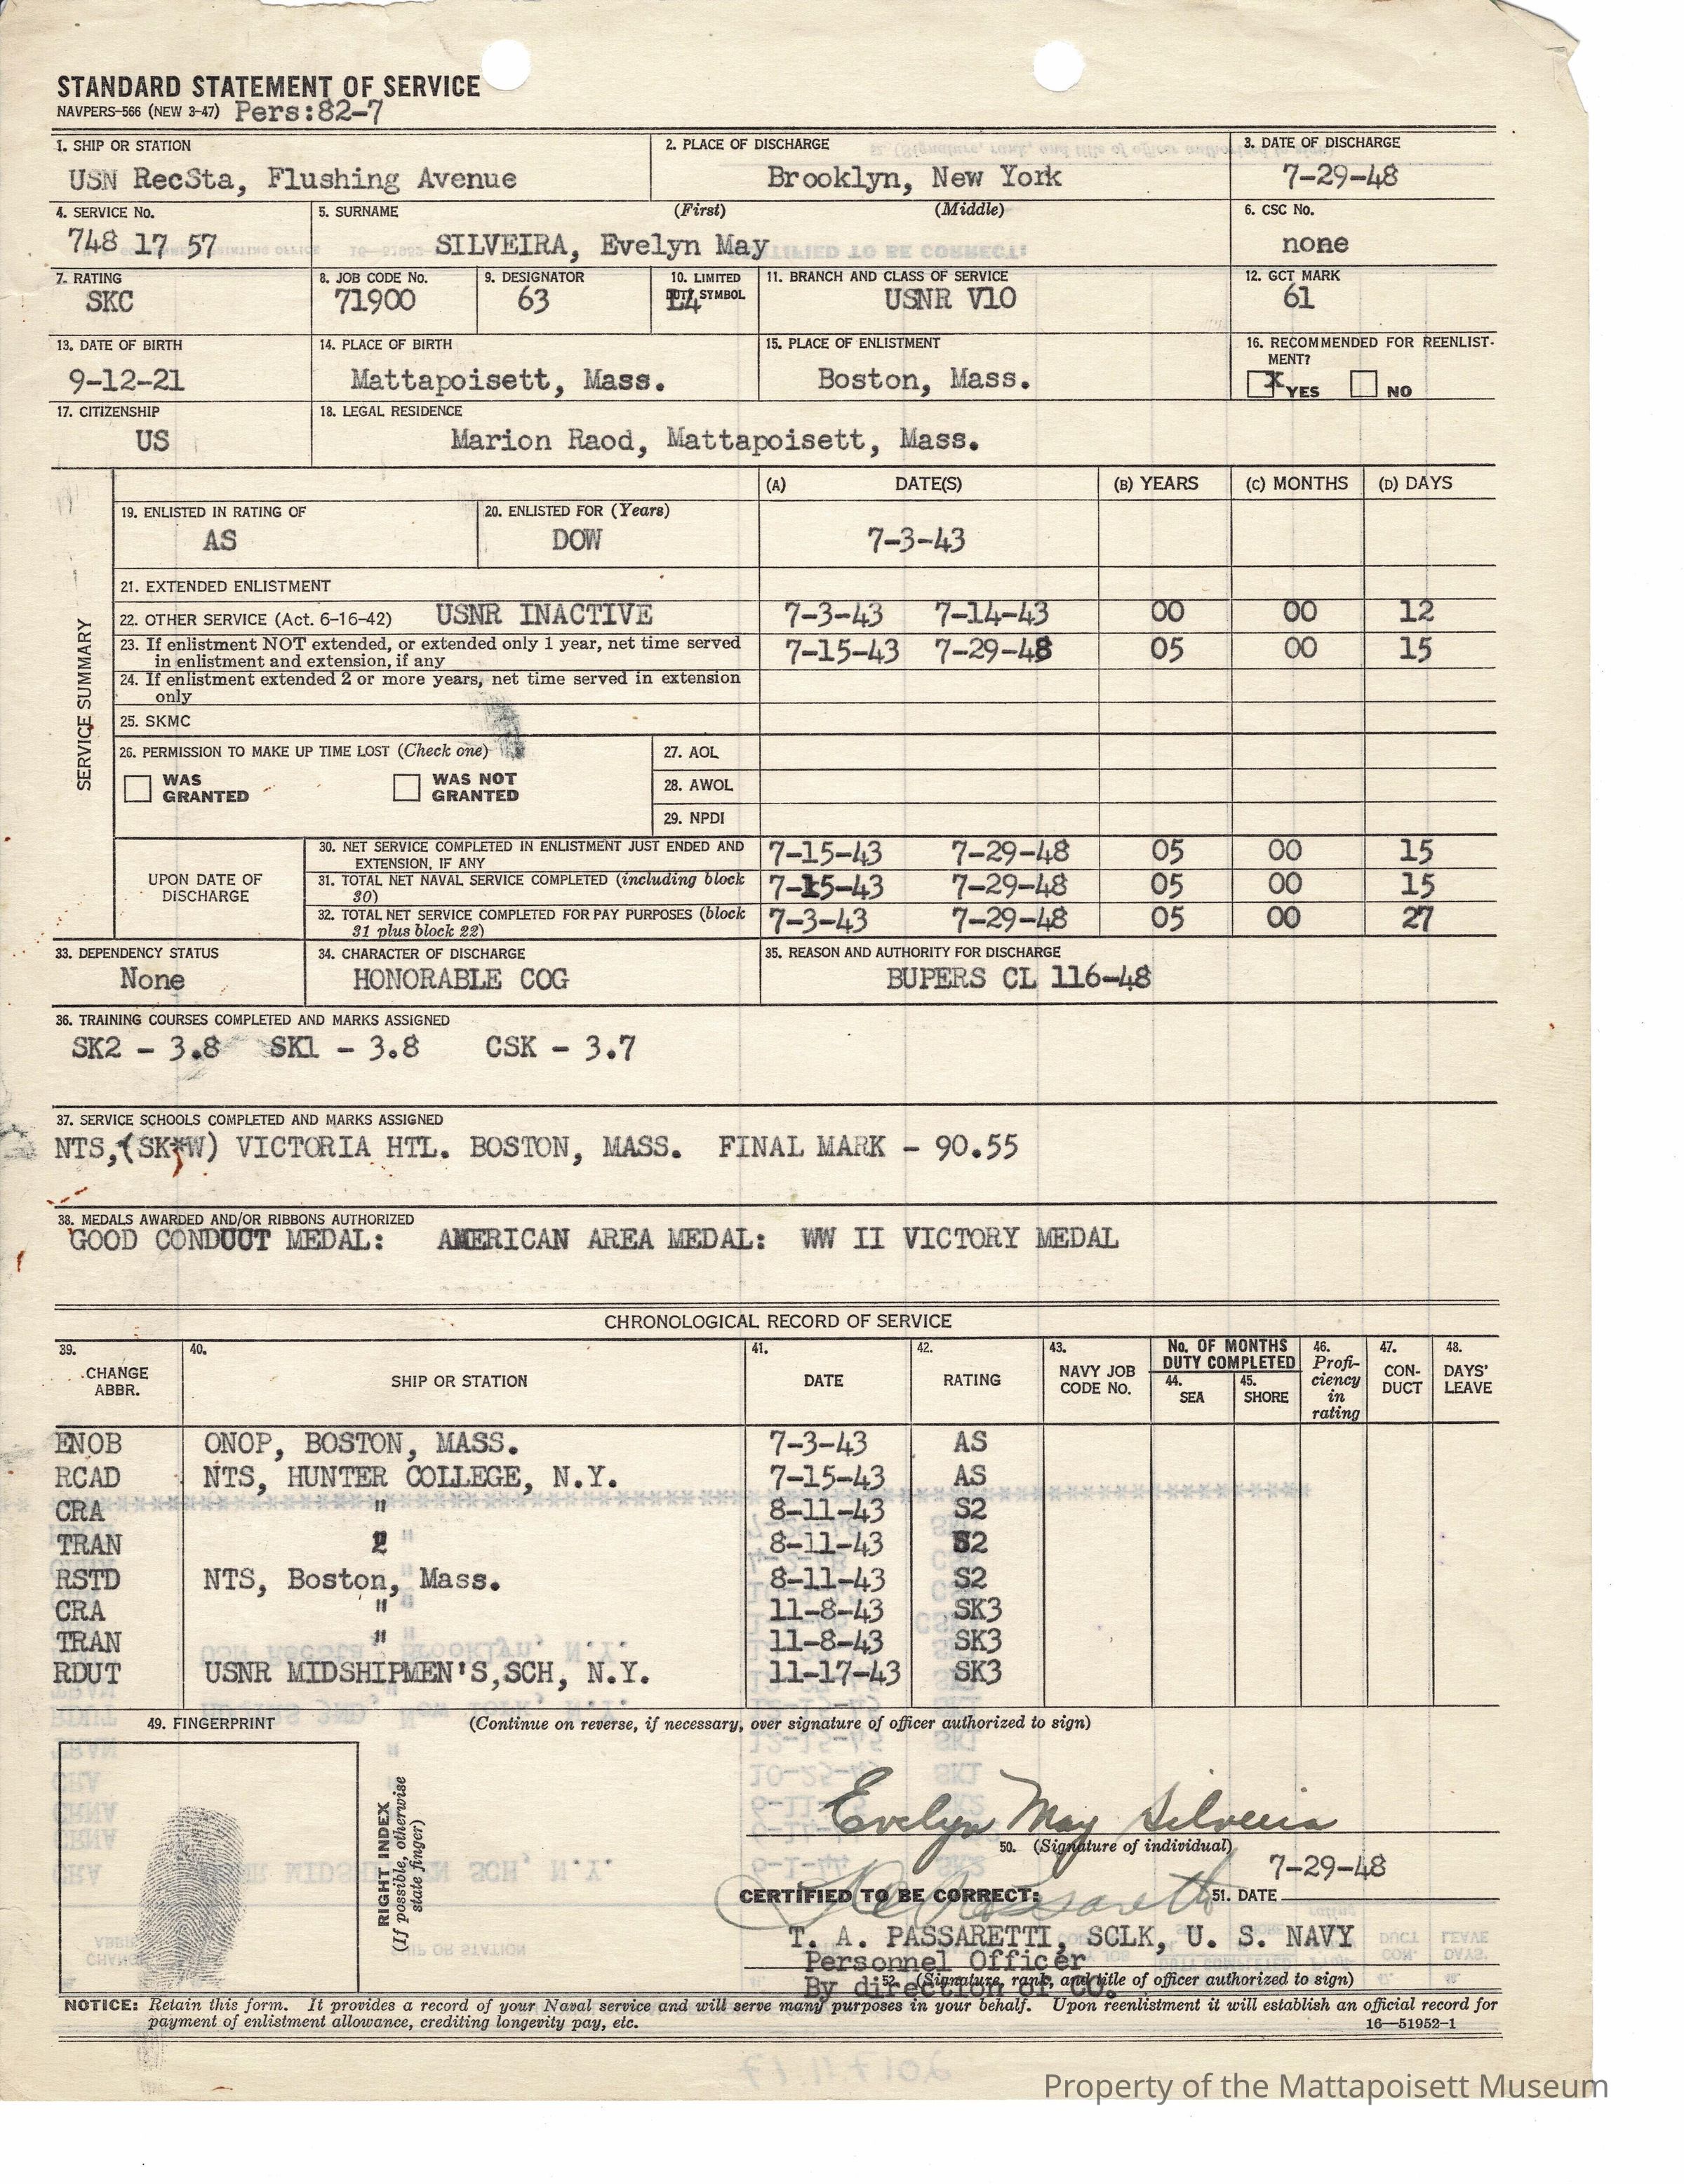 STANDARD STATEMENT OF SERVICE
NAVPERS-566 (NEW 3-47) Pers:82-7
1. SHIP OR STATION 2. PLACE OF DISCHARGE 3. DATE OF DISCHARGE
USN RecSta, Flushing Avenue Brooklyn, New York 7-29-48
4. SERVICE No. 5. SURNAME (First) (Middle) 6. CSC No.
748 17 57 SILVEIRA, Evelyn May none
7. RATING 8. JOB CODE No. 9. DESIGNATOR 10. LIMITED DUTY SYMBOL 11. BRANCH AND CLASS OF SERVICE 12. GCT MARK
SKC 71900 63 L4 USNR V10 61
13. DATE OF BIRTH 14. PLACE OF BIRTH 15. PLACE OF ENLISTMENT 16. RECOMMENDED FOR REENLIST-
MENT?
9-12-21 Mattapoisett, Mass. Boston, Mass. X YES NO
17. CITIZENSHIP 18. LEGAL RESIDENCE
US Marion Raod, Mattapoisett, Mass.
SERVICE SUMMARY
(A) DATE(S) (B) YEARS (C) MONTHS (D) DAYS
19. ENLISTED IN RATING OF 20. ENLISTED FOR (Years)
AS DOW 7-3-43
21. EXTENDED ENLISTMENT
22. OTHER SERVICE (Act. 6-16-42) USNR INACTIVE 7-3-43 7-14-43 00 00 12
23. If enlistment NOT extended, or extended only 1 year, net time served
in enlistment and extension, if any 7-15-43 7-29-48 05 00 15
24. If enlistment extended 2 or more years, net time served in extension
only
25. SKMC
26. PERMISSION TO MAKE UP TIME LOST (Check one) 27. AOL
WAS GRANTED WAS NOT GRANTED 28. AWOL
29. NPDI
UPON DATE OF DISCHARGE
30. NET SERVICE COMPLETED IN ENLISTMENT JUST ENDED AND
EXTENSION, IF ANY 7-15-43 7-29-48 05 00 15
31. TOTAL NET NAVAL SERVICE COMPLETED (including block
30) 7-15-43 7-29-48 05 00 15
32. TOTAL NET SERVICE COMPLETED FOR PAY PURPOSES (block
31 plus block 22) 7-3-43 7-29-48 05 00 27
33. DEPENDENCY STATUS 34. CHARACTER OF DISCHARGE 35. REASON AND AUTHORITY FOR DISCHARGE
None HONORABLE COG BUPERS CL 116-48
36. TRAINING COURSES COMPLETED AND MARKS ASSIGNED
SK2 - 3.8 SK1 - 3.8 CSK - 3.7
37. SERVICE SCHOOLS COMPLETED AND MARKS ASSIGNED
NTS,(SK*W) VICTORIA HTL. BOSTON, MASS. FINAL MARK - 90.55
38. MEDALS AWARDED AND/OR RIBBONS AUTHORIZED
GOOD CONDUCT MEDAL: AMERICAN AREA MEDAL: WW II VICTORY MEDAL
CHRONOLOGICAL RECORD OF SERVICE
39. CHANGE ABBR. 40. SHIP OR STATION 41. DATE 42. RATING 43. NAVY JOB CODE No. No. OF MONTHS DUTY COMPLETED 44. SEA 45. SHORE 46. Profi-ciency in rating 47. CON-DUCT 48. DAYS' LEAVE
ENOB ONOP, BOSTON, MASS. 7-3-43 AS
RCAD NTS, HUNTER COLLEGE, N.Y. 7-15-43 AS
CRA " 8-11-43 S2
TRAN " 8-11-43 S2
RSTD NTS, Boston, Mass. 8-11-43 S2
CRA " 11-8-43 SK3
TRAN " 11-8-43 SK3
RDUT USNR MIDSHIPMEN'S,SCH, N.Y. 11-17-43 SK3
49. FINGERPRINT (Continue on reverse, if necessary, over signature of officer authorized to sign)
RIGHT INDEX
(If possible, otherwise
state finger)
Evelyn May Silveira
50. (Signature of individual)
7-29-48
CERTIFIED TO BE CORRECT: 51. DATE
T. A. PASSARETTI, SCLK, U. S. NAVY
Personnel Officer
By direction of CO.
52. (Signature, rank, and title of officer authorized to sign)
NOTICE: Retain this form. It provides a record of your Naval service and will serve many purposes in your behalf. Upon reenlistment it will establish an official record for
payment of enlistment allowance, crediting longevity pay, etc. 16—51952-1
Property of the Mattapoisett Museum